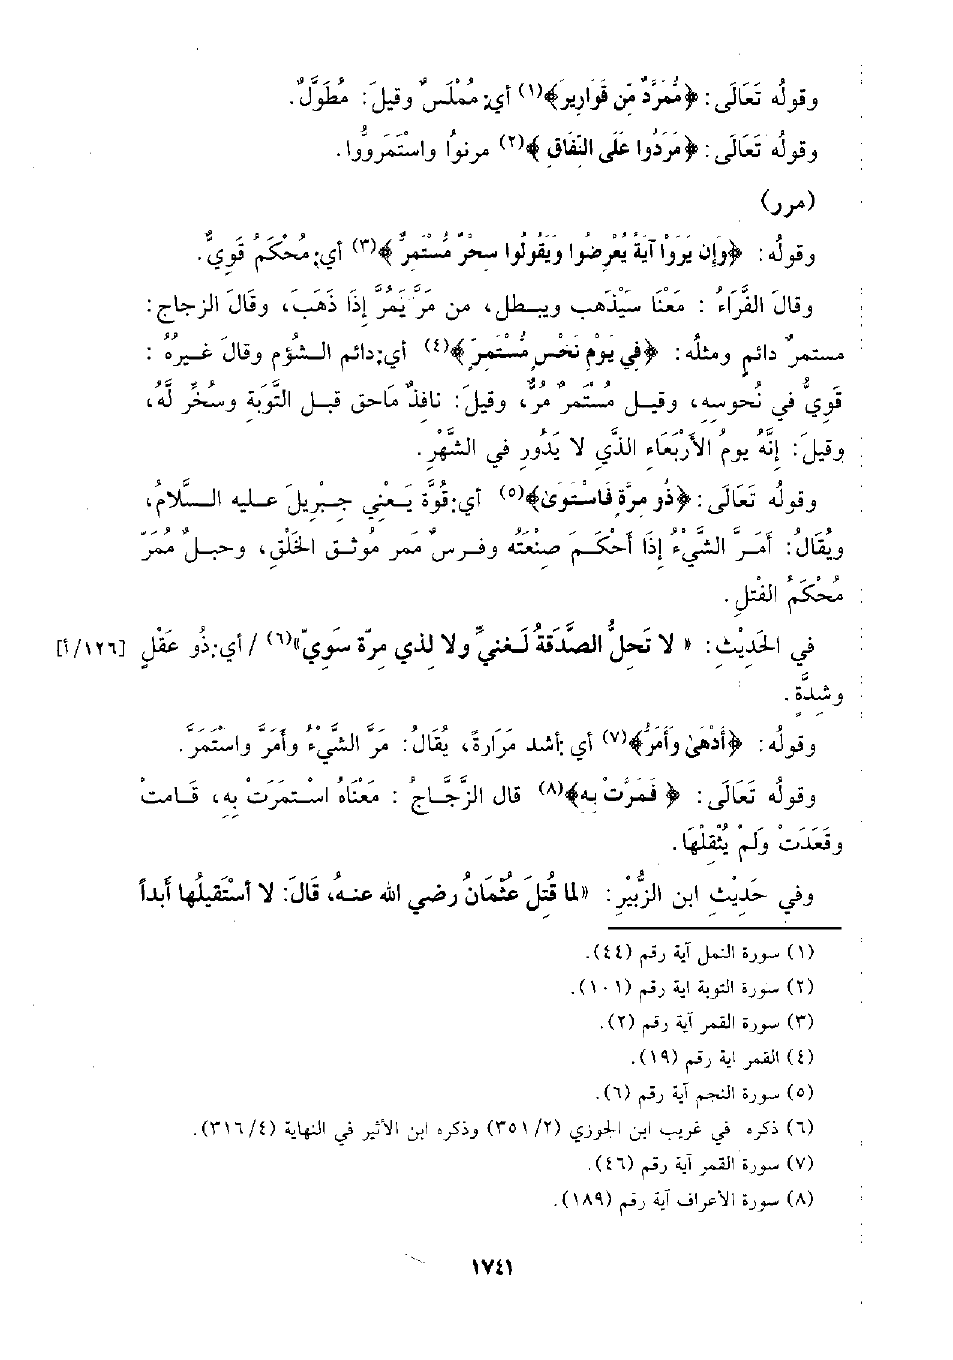 وقولُه تَعَالَى: ﴿مُّمَرَّدٌ مِّن قَوَارِيرَ﴾(١) أي: مُمْلَسٌ وقيلَ: مُطَوَّلٌ.
وقولُه تَعَالَى: ﴿مَرَدُوا عَلَى النِّفَاقِ﴾(٢) مرنوُا واستَمَرووُّا.
(مرر)
وقولُه: ﴿وَإِن يَرَوْا آيَةً يُعْرِضُوا وَيَقُولُوا سِحْرٌ مُّسْتَمِرٌّ﴾(٣) أي: مُحْكَمٌ قَوِيٌّ.
وقالَ الفَّرَاءُ : مَعْنَا سَيَْذهَب ويبطل، من مَرَّ يَمُرَّ إذَا ذَهَبَ، وقَالَ الزجاج:
مستمرٌ دائمٍ ومثلُه: ﴿فِي يَوْمِ نَحْسٍ مُّسْتَمِرٍّ﴾(٤) أي: دائم الشُؤم وقالَ غيرُهُ :
قَوِيٌّ في نُحوسِهِ، وقيل مُستَمرٌ مُرٌّ، وقيلَ: نافذٌ مَاحق قبل التَّوبَةِ وسُخَّر لَّهُ،
وقيلَ: إنَّهُ يومُ الأَرْبعَاءِ الذَّي لا يَدُور في الشَّهْرِ.
وقولُه تَعَالَى: ﴿ذُو مِرَّةٍ فَاسْتَوَىٰ﴾(٥) أي: قُوَّة يَعْني جِبْرِيلَ عليه السَّلامُ،
ويُقَالُ: أمَرَّ الشَّيْءُ إذَا أحْكَمَ صِنْعَتُه وفرسٌ مَمر مُوثق الخَلْقِ، وحبلٌ مُمَرّ
مُحْكَمُ الفْتل.
في الحَدِيْثِ: « لا تَحِلُّ الصَّدَقَةُ لغنيٍّ ولا لِذي مِرّة سَوِيّ»(٦) / أي: ذُو عَقْلٍ [١٢٦/أ]
وشدَّةٍ.
وقولُه: ﴿أَدْهَىٰ وَأَمَرُّ﴾(٧) أي: أشد مَرَارةً، يقَالُ: مَرَّ الشَّيْءُ وأمَرَّ واستَمَرَّ.
وقولُه تَعَالَى: ﴿ فَمَرَّتْ بِهِ﴾(٨) قال الزَّجَّاجُ : مَعْنَاهُ اسْتمرَتْ بِهِ، قَامتْ
وقَعَدَتْ ولَمْ يُثْقِلْهَا.
وفي حَدِيْثِ ابن الزُّبَيْرِ: «لما قُتِلَ عثْمَانُ رضي الله عنهُ، قَالَ: لا أسْتَقيلُها أبَداً
(١) سورة النمل آية رقم (٤٤).
(٢) سورة التوبة اية رقم (١٠١).
(٣) سورة القمر آية رقم (٢).
(٤) القمر اية رقم (١٩).
(٥) سورة النجم آية رقم (٦).
(٦) ذكره في غريب ابن الجوزي (٣٥١/٢) وذكره ابن الأثير في النهاية (٣١٦/٤).
(٧) سورة القمر آية رقم (٤٦).
(٨) سورة الأعراف آية رقم (١٨٩).
١٧٤١